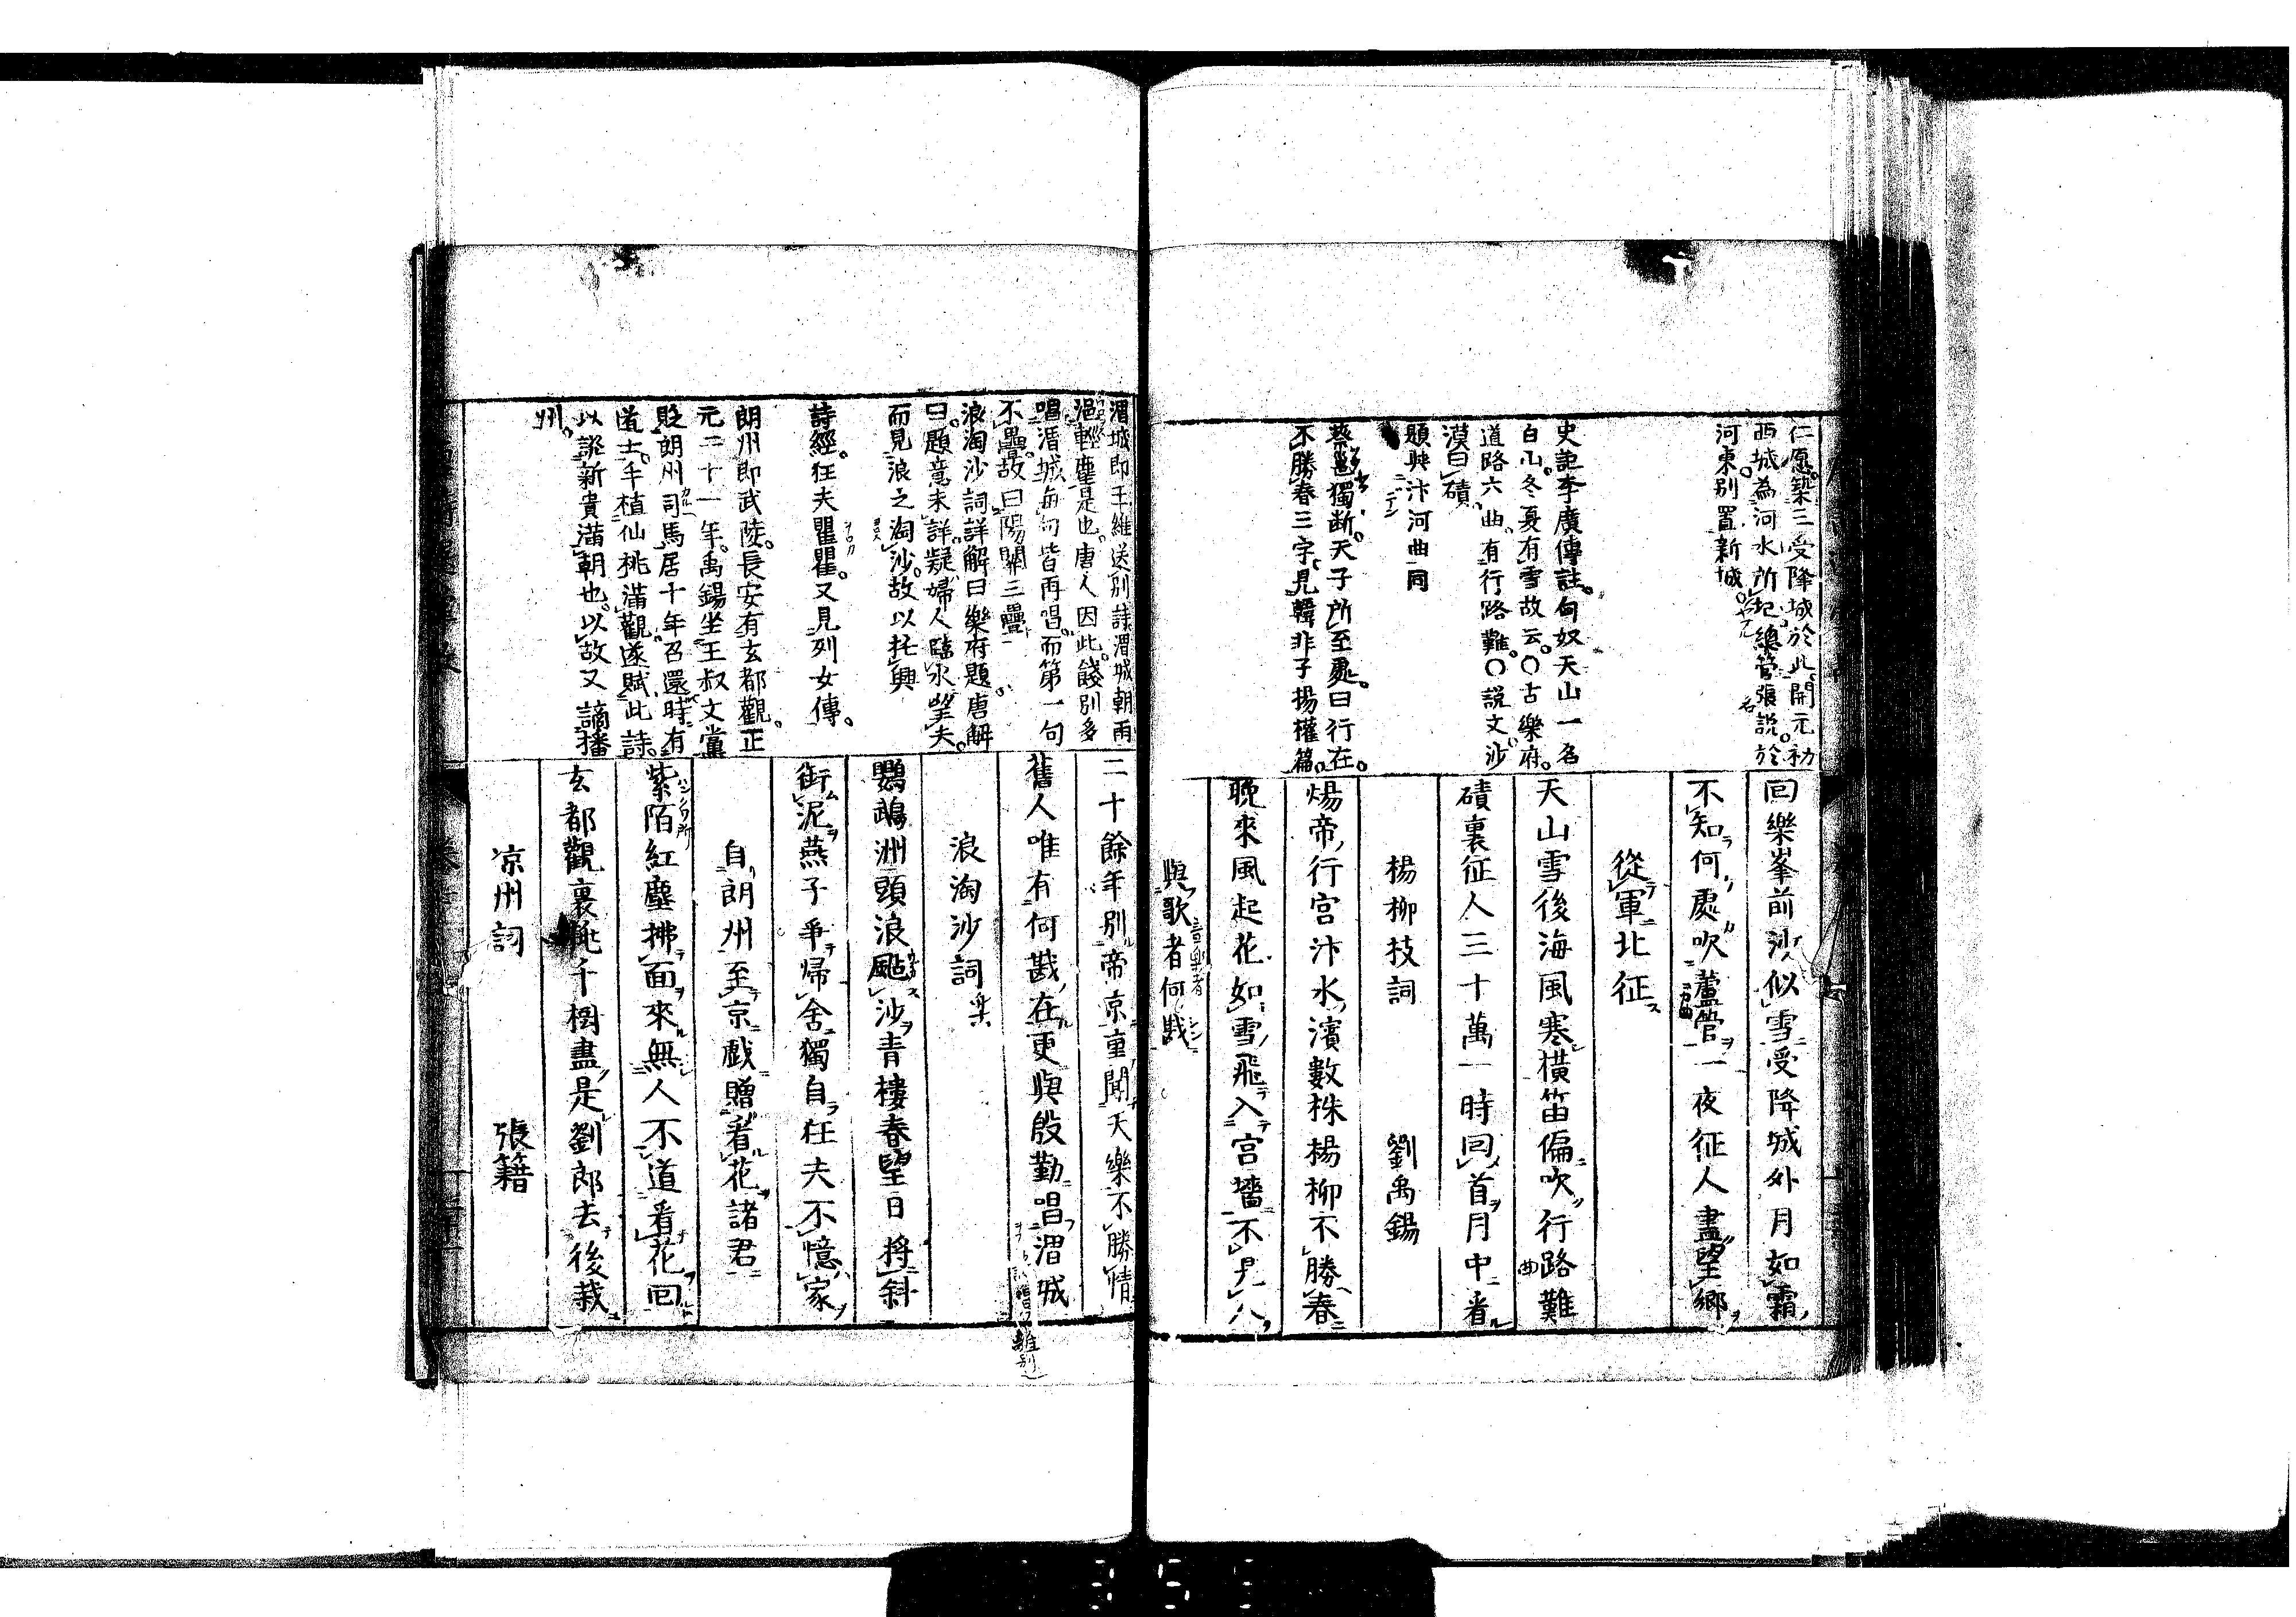 仁愿築三受降城於此開元初
西城為河水所圮總管張說於
河東別置新城
史記李廣傳註匈奴天山一名
白山冬夏有雪故云〇古樂府
道路六曲有行路難〇說文沙
漠曰磧
題與汴河曲同
蔡邕獨斷天子所至處曰行在
不勝春三字見韓非子揚權篇
回樂峯前沙似雪受降城外月如霜
不知何處吹蘆管一夜征人盡望鄉
從軍北征
天山雪後海風寒橫笛偏吹行路難
磧裏征人三十萬一時回首月中看
楊柳枝詞 劉禹錫
煬帝行宮汴水濱數株楊柳不勝春
晚來風起花如雪飛入宮墻不見人
與歌者何戡
渭城即王維送別詩渭城朝雨
浥輕塵是也唐人因此餞別多
唱渭城每句皆再唱而第一句
不疊故曰陽關三疊
浪淘沙詞詳解曰樂府題唐解
曰題意未詳疑婦人臨水望夫
而見浪之淘沙故以托興
詩經狂夫瞿瞿又見列女傳
朗州即武陵長安有玄都觀正
元二十一年禹錫坐王叔文黨
貶朗州司馬居十年召還時有
道士手植仙桃滿觀遂賦此詩
以譏新貴滿朝也以故又謫播
州
二十餘年別帝京重聞天樂不勝情
舊人唯有何戡在更與殷勤唱渭城
浪淘沙詞
鸚鵡洲頭浪颭沙青樓春望日將斜
銜泥燕子爭歸舍獨自狂夫不憶家
自朗州至京戲贈看花諸君
紫陌紅塵拂面來無人不道看花回
玄都觀裏桃千樹盡是劉郎去後栽
凉州詞 張籍